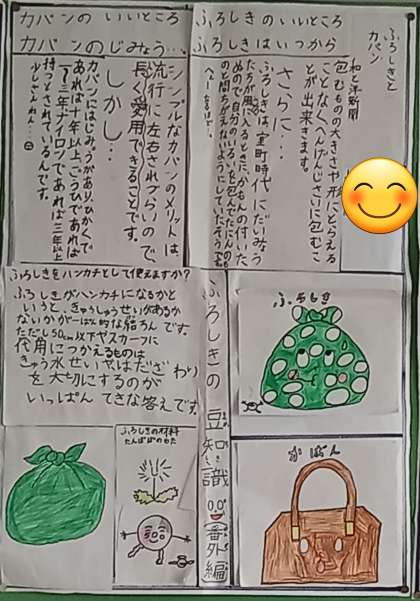 ふろしきと
カバン
和と洋新聞
ふろしきのいいところ
ふろしきはいつから
包むものの大きさや形にとらえる
ことなくへんげんじざいに包むこ
とが出来きます。
さらに…
ふろしきは、室町時代にだいみょう
たちが風にいるときに、かもんの付いた
ぬので、自分のいるいを包んでたにんの
のと間ちがえないようにしていたそうです
へぇーなるほど…
カバンのいいところ
カバンのじみょう…
シンプルなカバンのメリットは、
流行に左右されづらいので
長く愛用できることです。
しかし…
カバンにはじみょうがあり、ひかくで
あれば十年以上、ごうひであれば
1〜3年ナイロンであれば三年以上
持つとされているんです。
ふろしきをハンカチとして使えますか?
ふろしきがハンカチになるかと
いうときゅうしゅうせいがあるか
ないかが一ぱん的な結ろんです。
ただし50cm以下やスカーフに
代用につかえるものは
きゅう水せいやはだざわり
を大切にするのが
いっぱんてきな答えです。
ふろしきの豆知識
番外編
ふろしき
かばん
ふろしきの材料